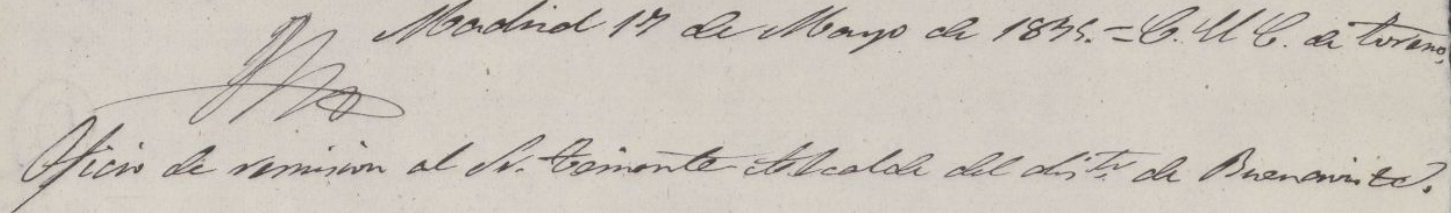 Madrid 17 de Mayo de 1875. = C. El C. de Toreno,
Oficio de remision al Sr. Teniente Alcalde del distº. de Buenavista.